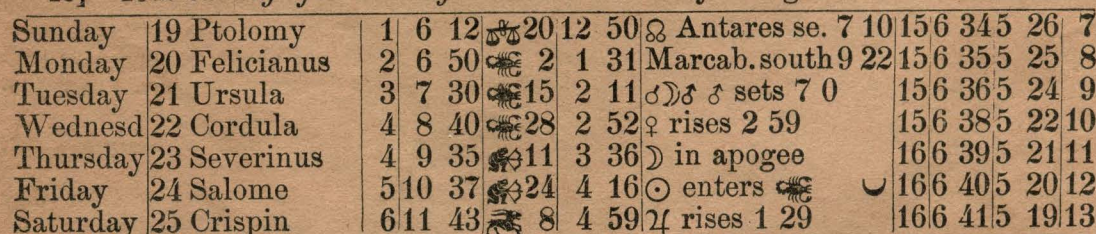 Sunday 19 Ptolomy 1 6 12 ♎ 20 12 50 ☊ Antares se. 7 10 15 6 34 5 26 7
Monday 20 Felicianus 2 6 50 ♏ 2 1 31 Marcab. south 9 22 15 6 35 5 25 8
Tuesday 21 Ursula 3 7 30 ♏ 15 2 11 ☌☽♂ ♂ sets 7 0 15 6 36 5 24 9
Wednesd 22 Cordula 4 8 40 ♏ 28 2 52 ♀ rises 2 59 15 6 38 5 22 10
Thursday 23 Severinus 4 9 35 ♐ 11 3 36 ☽ in apogee 16 6 39 5 21 11
Friday 24 Salome 5 10 37 ♐ 24 4 16 ☉ enters ♏ 16 6 40 5 20 12
Saturday 25 Crispin 6 11 43 ♑ 8 4 59 ♃ rises 1 29 16 6 41 5 19 13